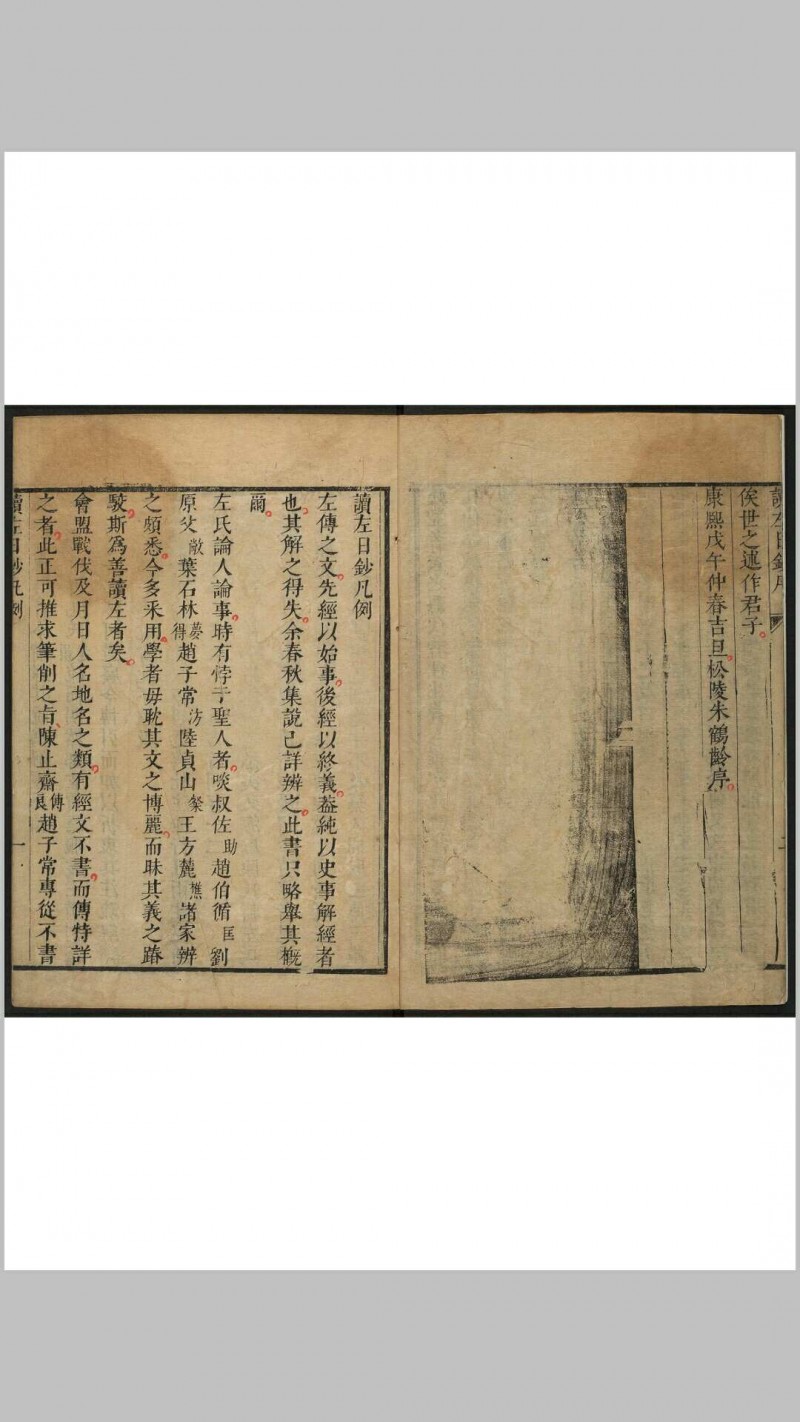 讀左日鈔序
俟世之述作君子
康熙戊午仲春吉旦松陵朱鶴齡序
讀左日鈔凡例
左傳之文先經以始事後經以終義葢純以史事解經者
也其解之得失余春秋集說已詳辨之此書只略舉其槪
爾
左氏論人論事時有悖于聖人者啖叔佐助趙伯循匡劉
原父敞葉石林夢得趙子常汸陸貞山粲王方麓樵諸家辨
之頗悉今多采用學者毋耽其文之博麗而昧其義之踳
駮斯為善讀左者矣
會盟戰伐及月日人名地名之類有經文不書而傳特詳
之者此正可推求筆削之旨陳止齋傅良趙子常專從不書
讀左日鈔凡例
一